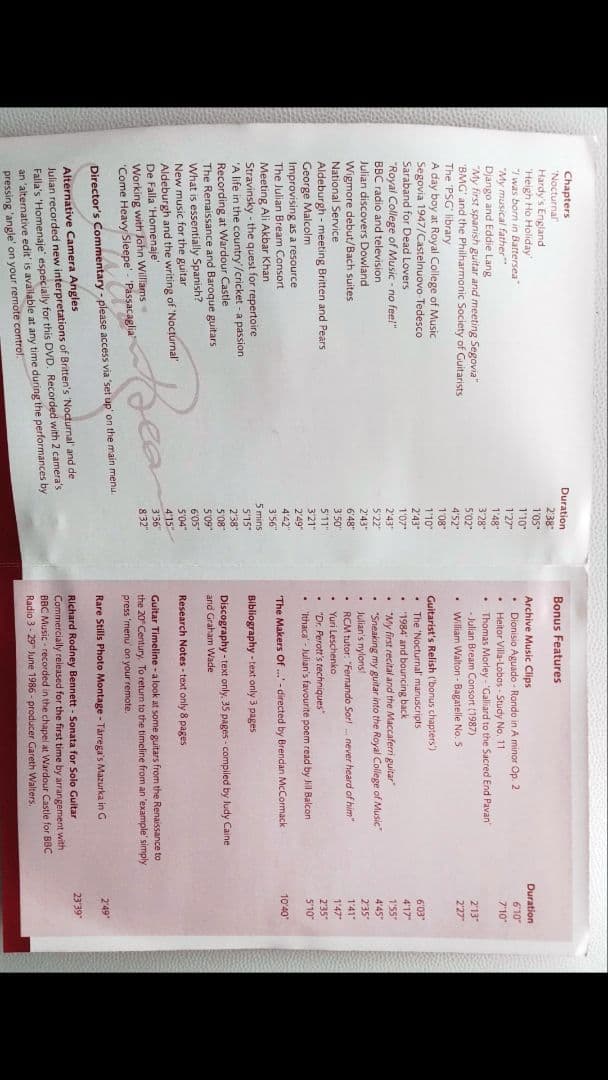 Chapters Duration
'Nocturnal' 2'38"
Hardy's England 1'05"
'Heigh Ho Holiday' 1'10"
"I was born in Battersea" 1'27"
"My musical father" 1'48"
Django and Eddie Lang 3'28"
"My first spanish guitar and meeting Segovia" 5'02"
'BMG' and the Philharmonic Society of Guitarists 4'52"
The 'PSG' library 1'08"
A day boy at Royal College of Music 1'10"
Segovia 1947/Castelnuovo-Tedesco 2'43"
Saraband for Dead Lovers 1'07"
"Royal College of Music - no fee!" 2'43"
BBC radio and television 5'22"
Julian discovers Dowland 2'43"
Wigmore debut/Bach suites 6'48"
National Service 3'50"
Aldeburgh - meeting Britten and Pears 5'11"
George Malcolm 3'21"
Improvising as a resource 2'49"
The Julian Bream Consort 4'42"
Meeting Ali Akbar Khan 3'56"
Stravinsky - the quest for repertoire 5 mins
'A life in the country'/cricket - a passion 5'15"
Recording at Wardour Castle 2'38"
The Renaissance and Baroque guitars 5'08"
What is essentially Spanish? 5'09"
New music for the guitar 6'05"
Aldeburgh and the writing of 'Nocturnal' 5'04"
De Falla 'Homenaje' 4'15"
Working with John Williams 3'36"
'Come Heavy Sleepe' - 'Passacaglia' 8'32"
Director's Commentary - please access via 'set up' on the main menu.
Alternative Camera Angles
Julian recorded new interpretations of Britten's 'Nocturnal' and de
Falla's 'Homenaje' especially for this DVD. Recorded with 2 camera's
an 'alternative edit' is available at any time during the performances by
pressing 'angle' on your remote control.
Julian Bream
Bonus Features
Archive Music Clips Duration
• Dionisio Aguado - Rondo in A minor Op. 2 6'10"
• Heitor Villa-Lobos - Study No. 11 7'10"
• Thomas Morley - 'Galliard to the Sacred End Pavan'
- Julian Bream Consort (1987) 2'13"
• William Walton - Bagatelle No. 5 2'27"
Guitarist's Relish ('bonus chapters')
• The 'Nocturnal' manuscripts 6'03"
• '1984' and bouncing back 4'17"
• "My first recital and the Maccaferri guitar" 1'55"
• "Sneaking my guitar into the Royal College of Music" 4'45"
• Julian's nylons! 2'35"
• RCM tutor: "Fernando Sor! ... never heard of him" 1'41"
• Yuri Leschenko 1'47"
• "Dr. Perott's techniques" 2'35"
• 'Ithaca' - Julian's favourite poem read by Jill Balcon 5'10"
'The Makers Of ... ' - directed by Brendan McCormack 10'40"
Bibliography - text only 3 pages
Discography - text only, 35 pages - compiled by Judy Caine
and Graham Wade
Research Notes - text only 8 pages
Guitar Timeline - a look at some guitars from the Renaissance to
the 20th Century. To return to the timeline from an 'example' simply
press 'menu' on your remote
Rare Stills Photo Montage - Tàrrega's Mazurka in G 2'49"
Richard Rodney Bennett - Sonata for Solo Guitar 23'39"
Commercially released for the first time by arrangement with
BBC Music - recorded in the chapel at Wardour Castle for BBC
Radio 3 - 29th June 1986 - producer Gareth Walters.